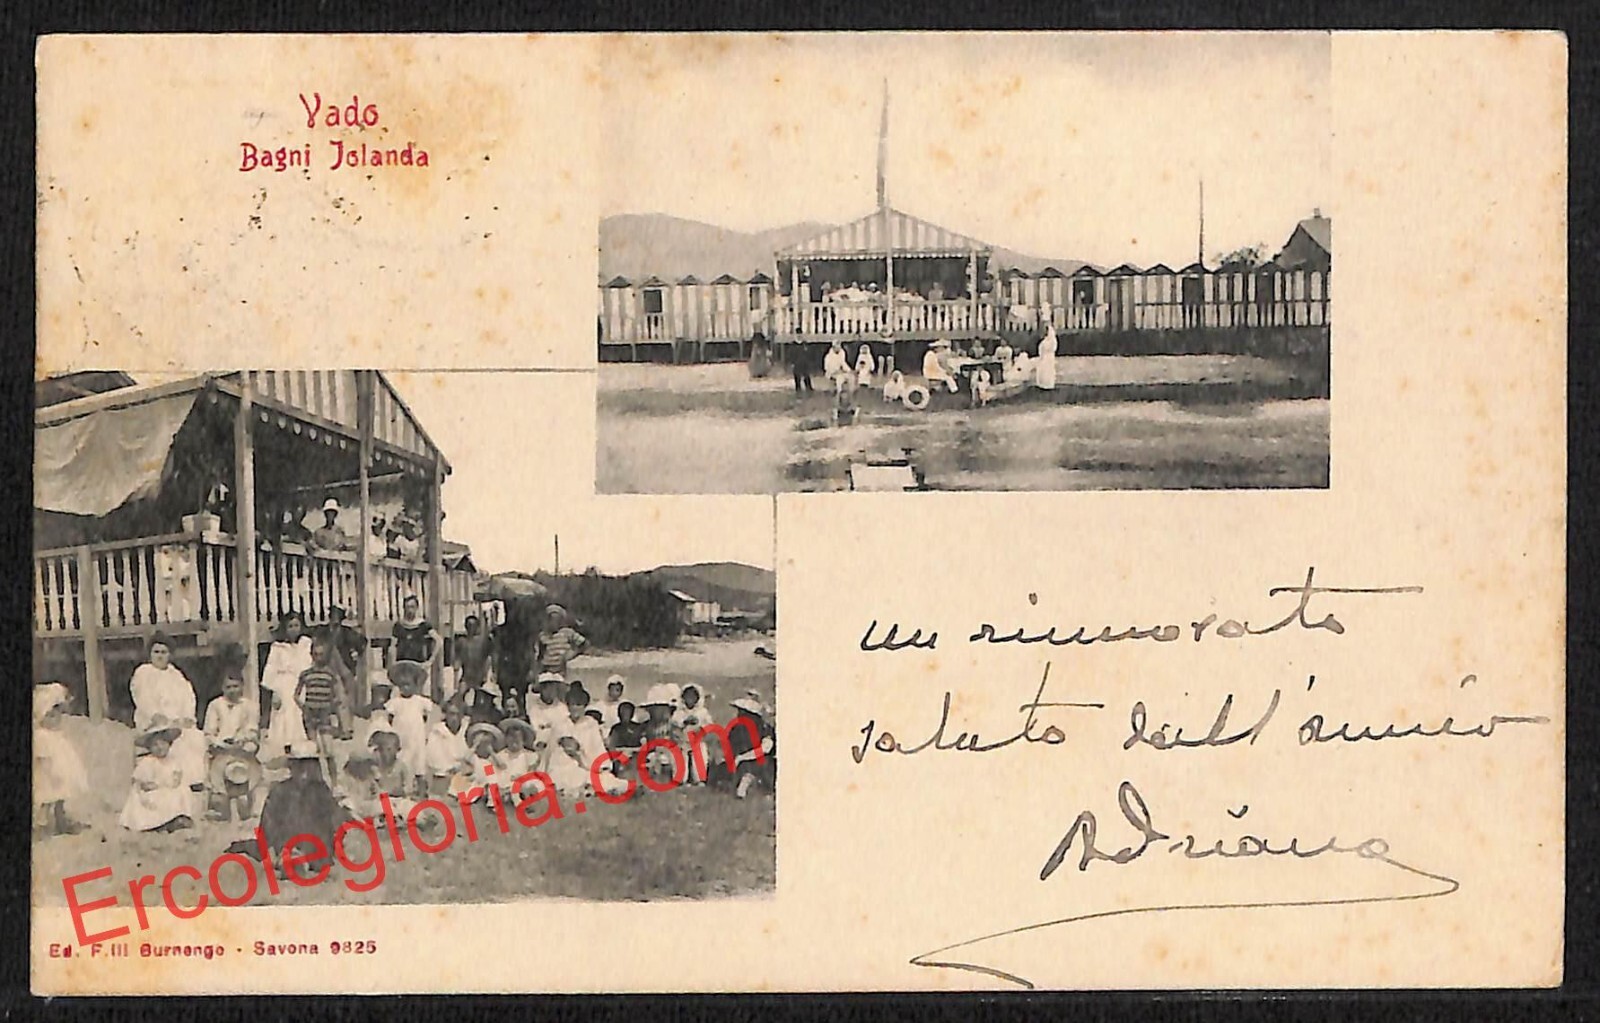 Vado
Bagni Jolanda
un rinnovato
saluto dall'amico
Adriana
Ercolegloria.com
Ed. F.lli Burnengo - Savona 9825